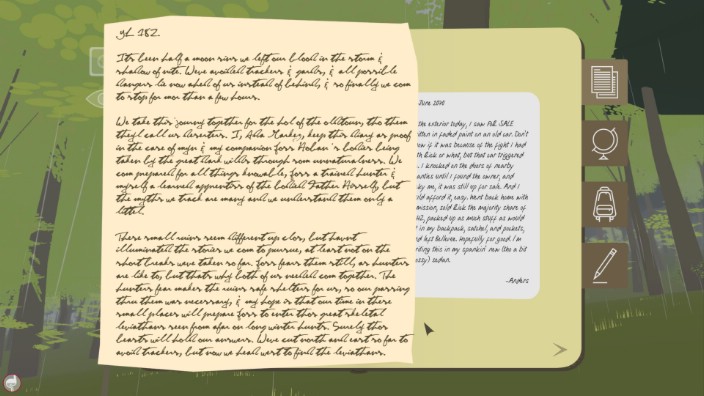 yL 182
It's been half a moon sins we left our blood in the storm &
shadow of nite. Weve avoided trackers & gards, & all possible
dangers lie now ahed of us instead of behind, & so finally we com
to stop for mor than a few hours.
We take this journy together for the hol of the
theyll call us deserters. I, Keep this diary as proof
in the case of myn & my companion Joss bodies being
taken by the great dark wilds through som unnaturalness. We
com prepared for all things knowable, Joss a trained hunter &
myself a learned apprentess of the Father but
the myths we track are many and we understand them only a
littel.
These small ruins seem different up clos, but havnt
illuminated the stories we com to pursue, at least not on the
short breaks weve taken so far. Joss fears them still, as hunters
are like to, but thats why both of us needed com together. The
hunters fear makes the ruins safe shelters for us, so our passing
thru them was necessary, & my hope is that our time in these
small places will prepare Joss to enter thos great skeletal
leviathans seen from afar on long winter hunts. Surely thos
beasts will hold our answers. Weve cut north and east so far to
avoid trackers, but now we head west to find the leviathans.
June 2010
the exterior today, I saw FOR SALE
in faded paint on an old car. Don't
if it was because of the fight I had
Erik or what, but that car triggered
I knocked on the doors of nearby
until I found the owner, and
by me, it was still up for sale. And I
afford it, easy. Went back home with
sold Erik the majority share of
packed up as much stuff as would
in my backpack, satchel, and pockets,
hopefully for good. I'm
this in my spankin' new (like a bit
sedan.
-Anders